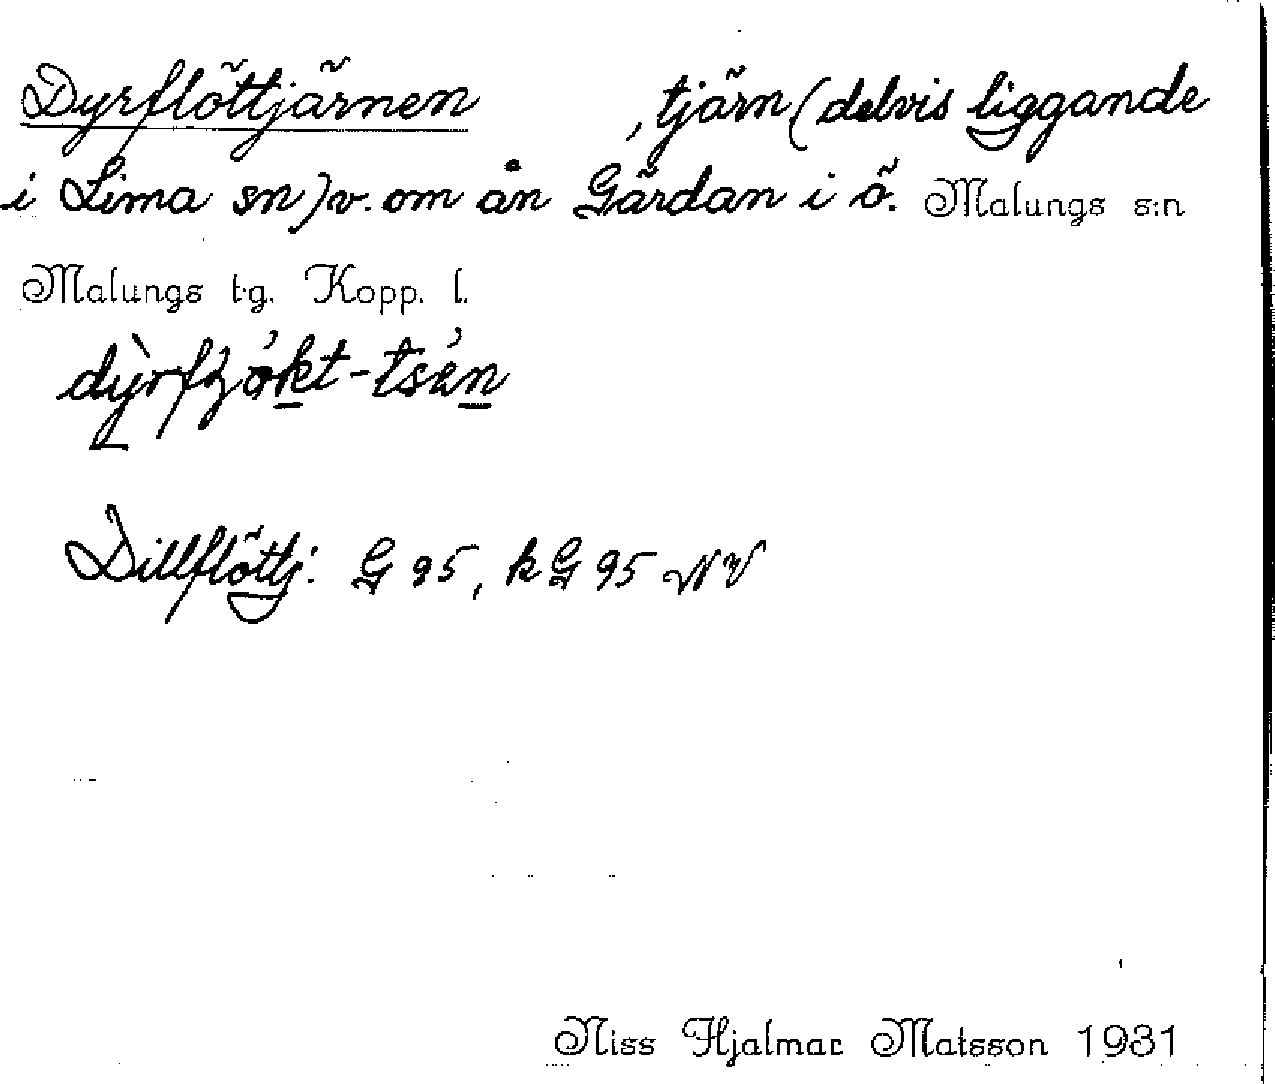 Dyrflöttjärnen , tjärn (delvis liggande
i Lima sn) v. om ån Gärdan i ö. Malungs s:n
Malungs t.g. Kopp. l.
Dillflöttj: G 95, kG 95 NV
Niss Hjalmar Matsson 1931